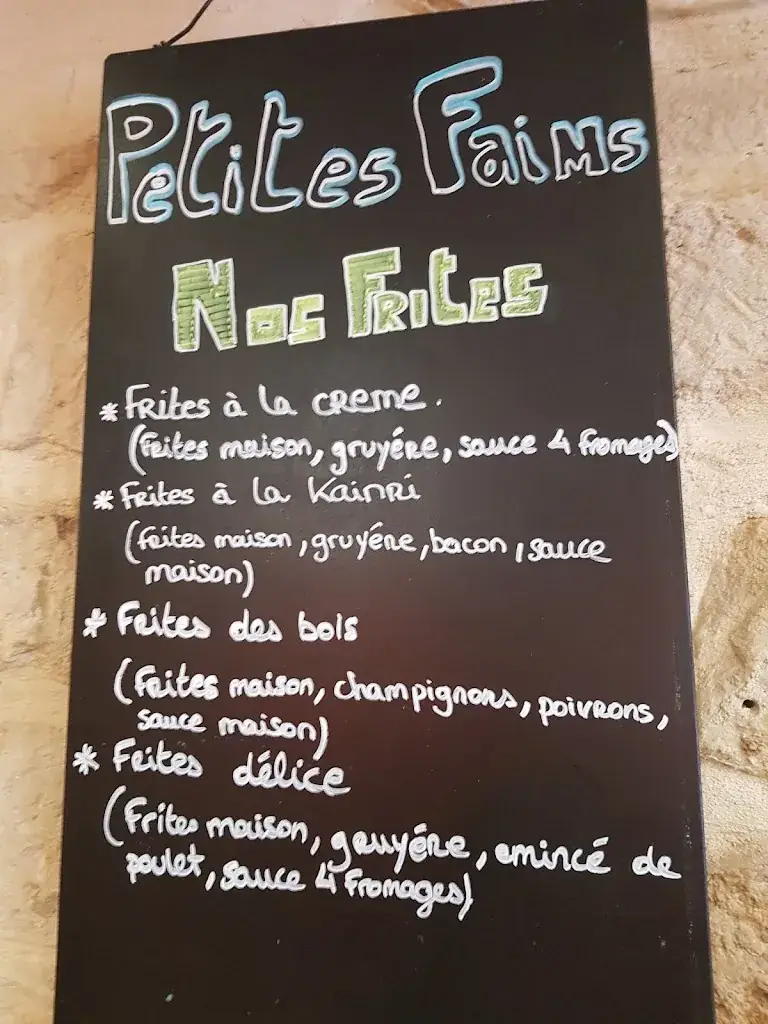 Petites Faims
Nos Frites
* Frites à la creme.
(Frites maison, gruyére, sauce 4 fromages)
* Frites à la Kainri
(Frites maison, gruyére, bacon, sauce
maison)
* Frites des bois
(Frites maison, champignons, poivrons,
sauce maison)
* Frites délice
(Frites maison, gruyére, emincé de
poulet, sauce 4 fromages)